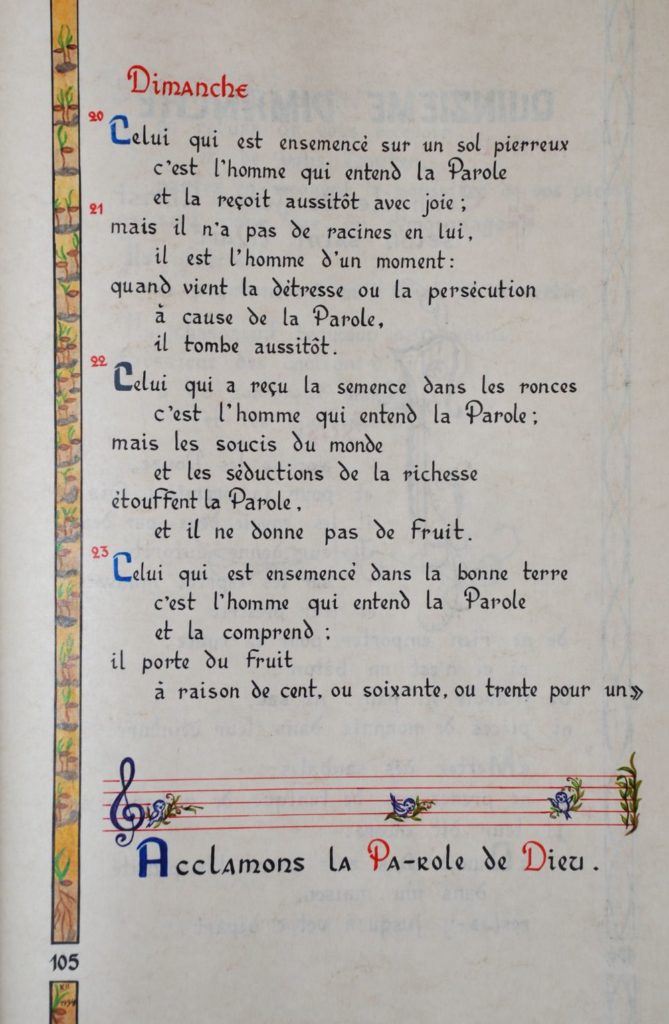 Dimanche
20 Celui qui est ensemencé sur un sol pierreux
c'est l'homme qui entend la Parole
et la reçoit aussitôt avec joie ;
21 mais il n'a pas de racines en lui,
il est l'homme d'un moment :
quand vient la détresse ou la persécution
à cause de la Parole,
il tombe aussitôt.
22 Celui qui a reçu la semence dans les ronces
c'est l'homme qui entend la Parole ;
mais les soucis du monde
et les séductions de la richesse
étouffent la Parole,
et il ne donne pas de fruit.
23 Celui qui est ensemencé dans la bonne terre
c'est l'homme qui entend la Parole
et la comprend ;
il porte du fruit
à raison de cent, ou soixante, ou trente pour un»
Acclamons la Pa-role de Dieu.
105